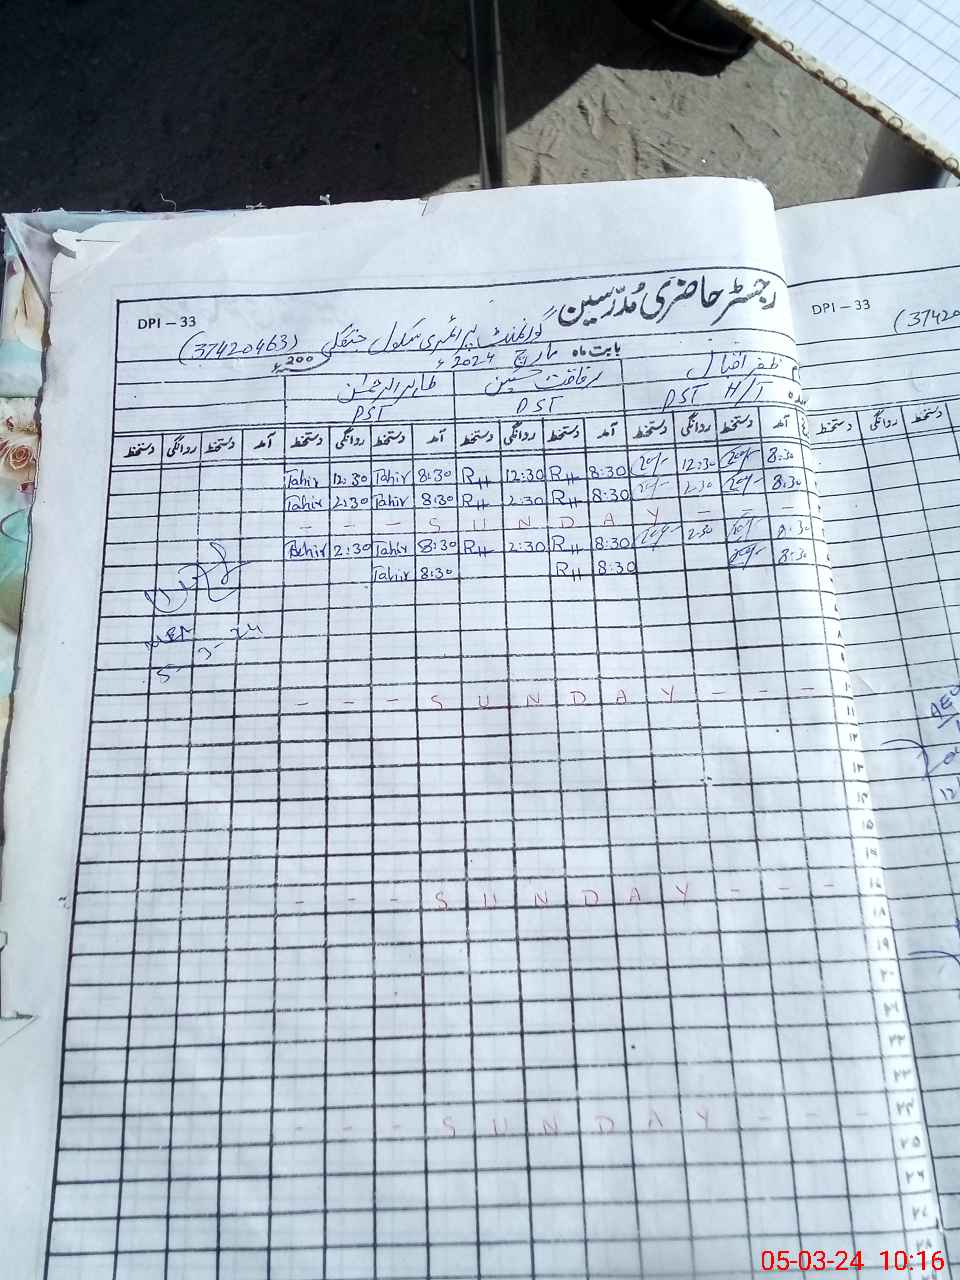 رجسٹر حاضری مُدرّسین
DPI – 33
گورنمنٹ پرائمری سکول جنگی (37420463)
بابت ماہ مارچ 2024ء 200
ظفر اقبال رفاقت حسین طاہر الرحمٰن
PST H/T PST PST
آمد دستخط روانگی دستخط آمد دستخط روانگی دستخط آمد دستخط روانگی دستخط آمد دستخط روانگی دستخط
8:30 12:30 8:30 RH 12:30 RH 8:30 Tahir 12:30 Tahir
8:30 2:30 8:30 RH 2:30 RH 8:30 Tahir 2:30 Tahir
- - - S U N D A Y - - -
8:30 2:30 8:30 RH 2:30 RH 8:30 Tahir 2:30 Tahir
8:30 8:30 RH 8:30 Tahir
5-3-24
- - - S U N D A Y - - -
- - - S U N D A Y - - -
- - - S U N D A Y - - -
DPI – 33
(37420
روانگی دستخط
AEO
05-03-24 10:16